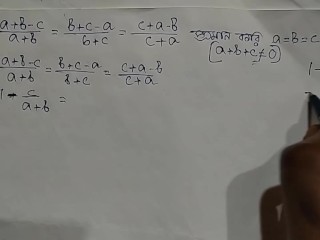 a+b-c/a+b = b+c-a/b+c = c+a-b/c+a প্রমাণ করি a=b=c
(a+b+c≠0)
a+b-c/a+b = b+c-a/b+c = c+a-b/c+a
1-
1 - c/a+b =